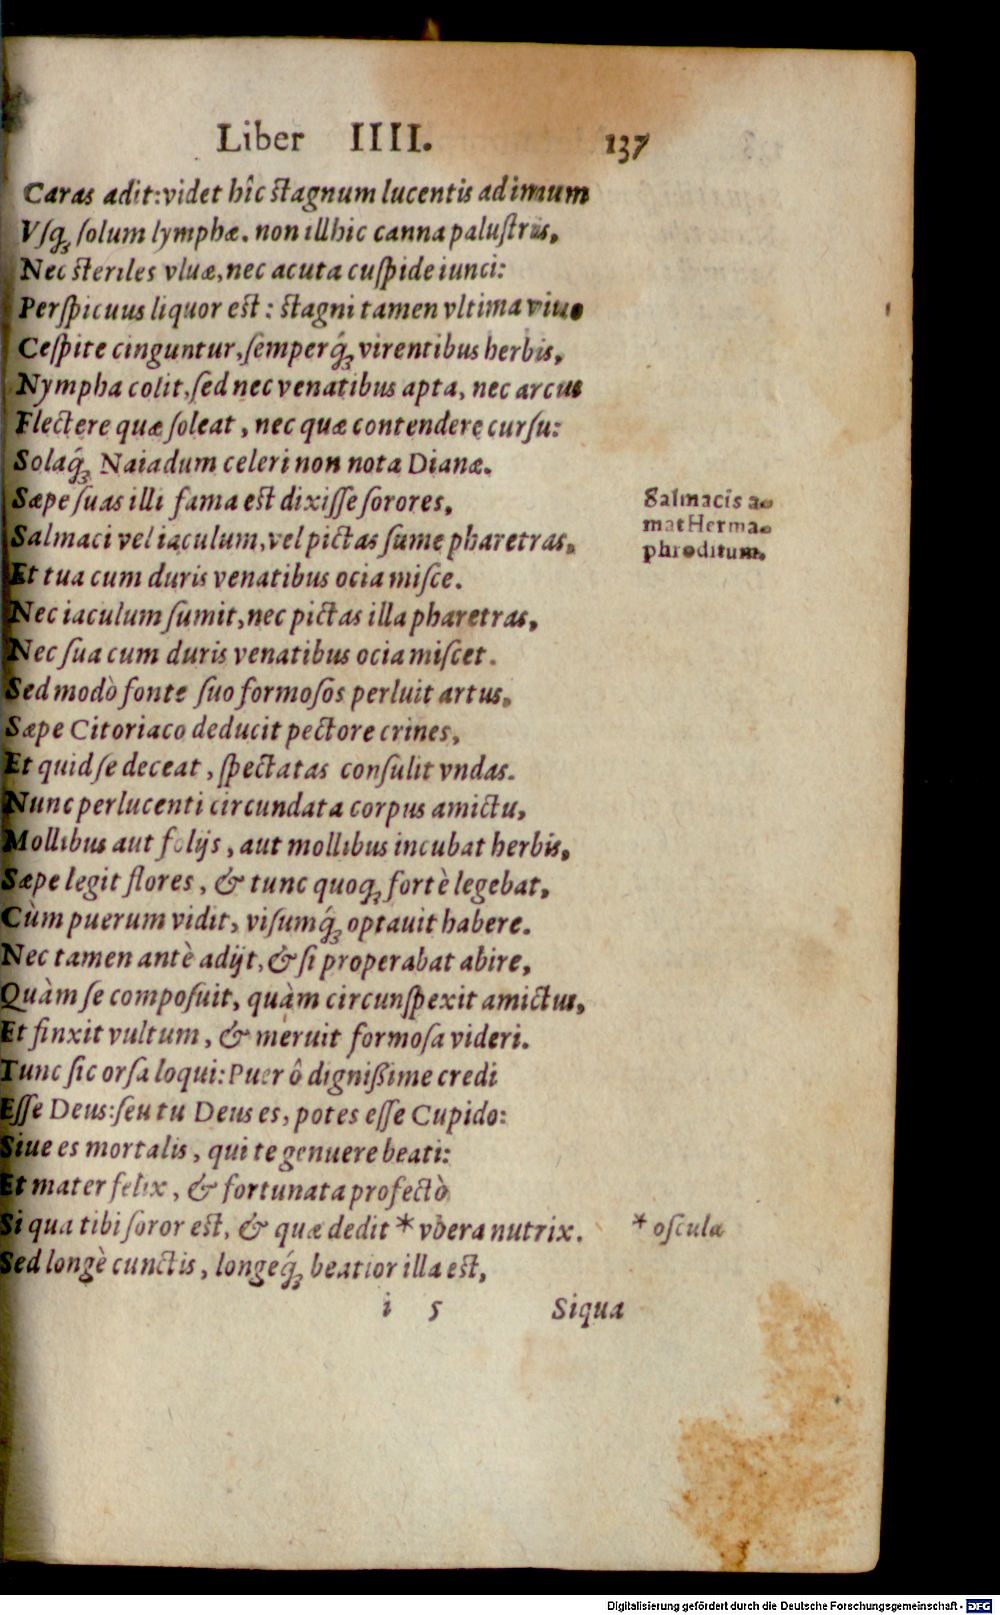 Liber IIII. 137
Caras adit:videt hîc ſtagnum lucentis ad imum
Vſq; ſolum lymphæ. non illhic canna paluſtris,
Nec ſteriles vluæ, nec acuta cuſpide iunci:
Perſpicuus liquor eſt: ſtagni tamen vltima viuo
Ceſpite cinguntur, ſemperq́; virentibus herbis,
Nympha colit, ſed nec venatibus apta, nec arcus
Flectere quæ ſoleat, nec quæ contendere curſu:
Solaq́; Naiadum celeri non nota Dianæ.
Sæpe ſuas illi fama eſt dixiſſe ſorores,
Salmacis a-
mat Herma-
phroditum.
Salmaci vel iaculum, vel pictas ſume pharetras,
Et tua cum duris venatibus ocia miſce.
Nec iaculum ſumit, nec pictas illa pharetras,
Nec ſua cum duris venatibus ocia miſcet.
Sed modò fonte ſuo formoſos perluit artus,
Sæpe Citoriaco deducit pectore crines,
Et quid ſe deceat, ſpectatas conſulit vndas.
Nunc perlucenti circundata corpus amictu,
Mollibus aut folijs, aut mollibus incubat herbis,
Sæpe legit flores, & tunc quoq; fortè legebat,
Cùm puerum vidit, viſumq́; optauit habere.
Nec tamen antè adijt, & ſi properabat abire,
Quàm ſe compoſuit, quàm circunſpexit amictus,
Et finxit vultum, & meruit formoſa videri.
Tunc ſic orſa loqui: Puer ô digniſſime credi
Eſſe Deus: ſeu tu Deus es, potes eſſe Cupido:
Siue es mortalis, qui te genuere beati:
Et mater felix, & fortunata profectò
Si qua tibi ſoror eſt, & quæ dedit * vbera nutrix. * oſcula
Sed longè cunctis, longeq́; beatior illa eſt,
i 5 Siqua
Digitalisierung gefördert durch die Deutsche Forschungsgemeinschaft - DFG